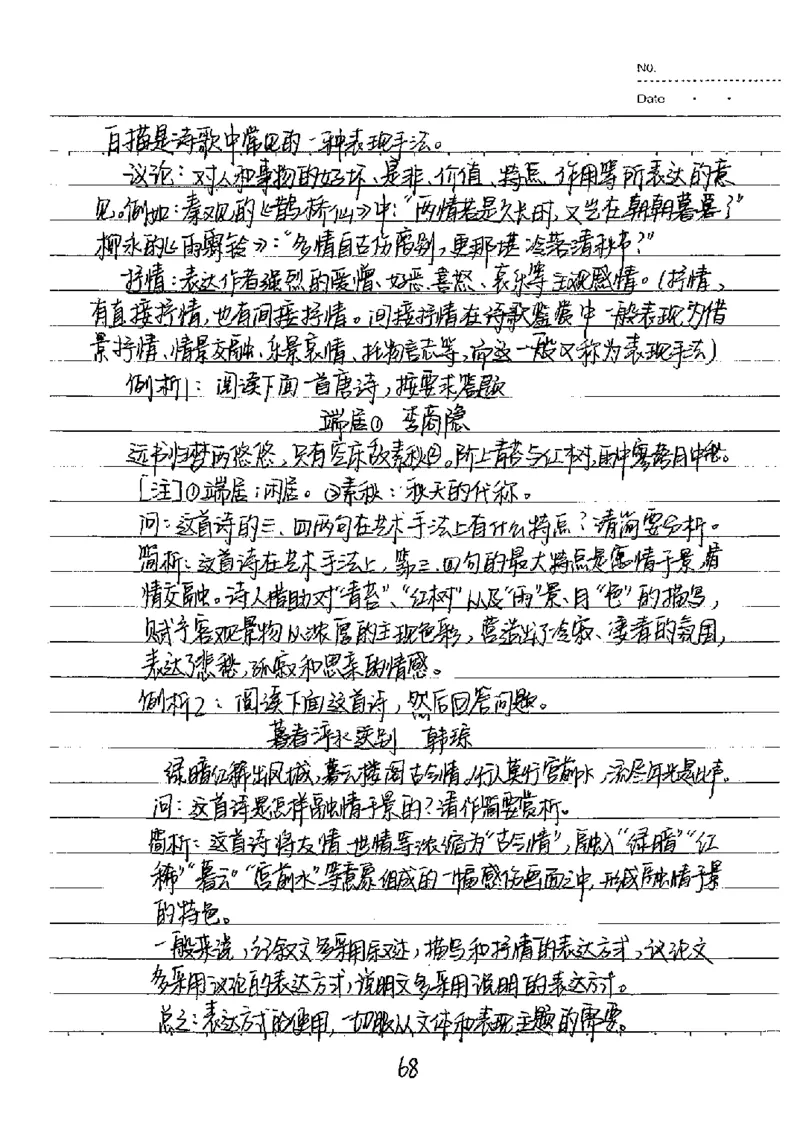 No.
Date · ·
白描是诗歌中常见的一种表现手法。
议论：对人和事物的好坏、是非、价值、特点、作用等所表达的意
见。例如：秦观的《鹊桥仙》中："两情若是久长时，又岂在朝朝暮暮？"
柳永的《雨霖铃》："多情自古伤离别，更那堪冷落清秋节？"
抒情：表达作者强烈的爱憎、好恶、喜怒、哀乐等主观感情。（抒情，
有直接抒情，也有间接抒情。间接抒情在诗歌鉴赏中一般表现为借
景抒情、情景交融、乐景哀情、托物言志等，而这一般又称为表现手法）
例析1：阅读下面一首唐诗，按要求答题
端居① 李商隐
远书归梦两悠悠，只有空床敌素秋②。阶下青苔与红树，雨中寥落月中愁。
[注]①端居：闲居。②素秋：秋天的代称。
问：这首诗的三、四两句在艺术手法上有什么特点？请简要分析。
简析：这首诗在艺术手法上，第三、四句的最大特点是寓情于景，
情交融。诗人借助对"青苔"、"红树"以及"雨"景、月"色"的描写，
赋予客观景物以浓厚的主观色彩，营造出了冷寂、凄清的氛围，
表达了悲愁、孤寂和思亲的情感。
例析2：阅读下面这首诗，然后回答问题。
暮春浐水送别 韩琮
绿暗红稀出凤城，暮云楼阁古今情。行人莫听宫前水，流尽年光是此声。
问：这首诗是怎样融情于景的？请作简要赏析。
简析：这首诗将友情、世情等浓缩为"古今情"，融入"绿暗""红
稀""暮云""宫前水"等意象组成的一幅感伤画面之中，形成融情于景
的特色。
一般来说，记叙文多采用叙述，描写和抒情的表达方式，议论文
多采用议论的表达方式，说明文多采用说明的表达方式。
总之：表达方式的使用，一切服从文体和表现主题的需要。
68